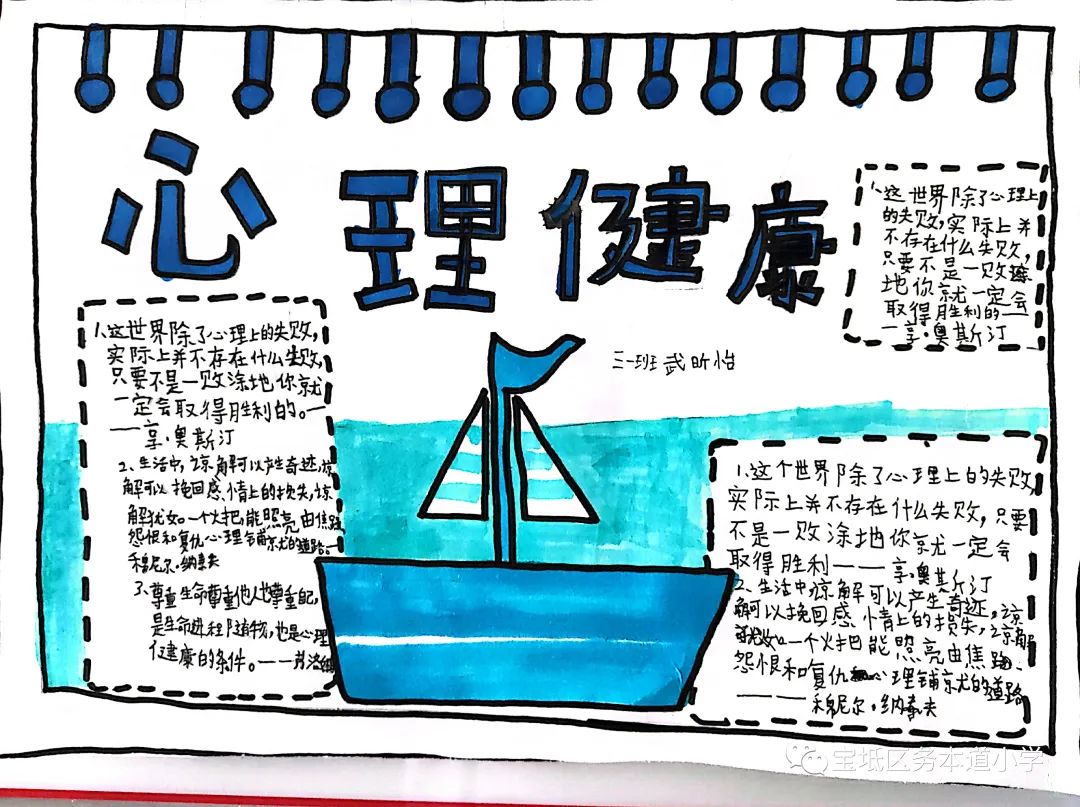 心理健康
1、这世界除了心理上
的失败,实际上并
不存在什么失败,
只要不是一败涂
地你就一定会
取得胜利的—
—享·奥斯汀
三一班 武昕怡
1、这世界除了心理上的失败,
实际上并不存在什么失败,
只要不是一败涂地你就
一定会取得胜利的。—
——享·奥斯汀
2、生活中,谅解可以产生奇迹,谅
解可以挽回感情上的损失,谅
解犹如一个火把,能照亮由焦躁
怨恨和复仇心理铺就的道路。—
穆尼尔·纳素夫
3、尊重生命尊重他人也尊重自己,
是生命进程中随物,也是心理
健康的条件。——弗洛姆
1、这个世界除了心理上的失败,
实际上并不存在什么失败,只要
不是一败涂地你就一定会
取得胜利——享·奥斯汀
2、生活中谅解可以产生奇迹,谅
解可以挽回感情上的损失,谅解
犹如一个火把能照亮由焦躁、
怨恨和复仇心理铺就的道路
———穆尼尔·纳素夫
宝坻区务本道小学